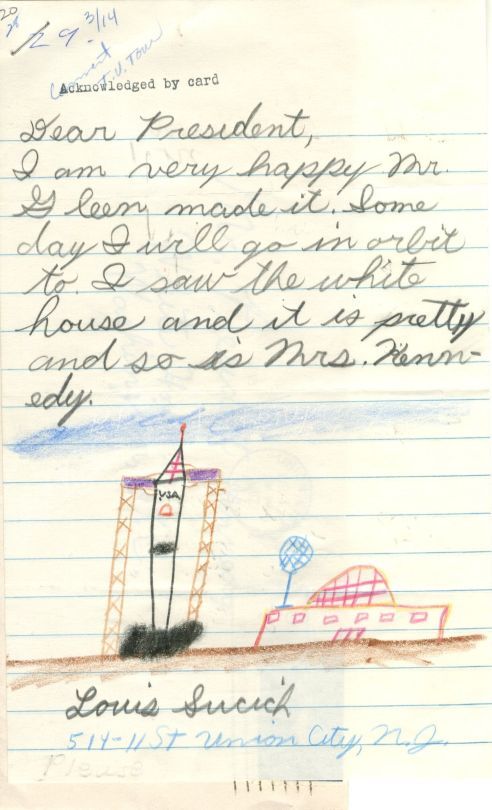 20
28
29. 3/14
Comment
T.V. Tour
Acknowledged by card
Dear President,
I am very happy Mr.
Gleen made it. Some
day I will go in orbit
to. I saw the white
house and it is pretty
and so is Mrs. Kenn-
edy.
USA
Louis Sucich
514-11 St Union City, N.J.
Please